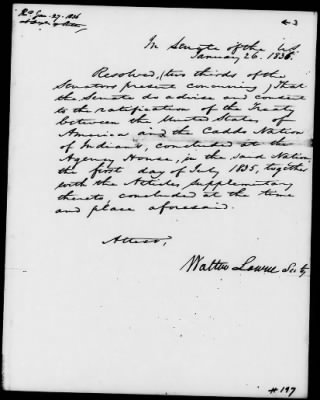 Rd Jan. 27. 1836
3
In Senate of the U.S.
January 26. 1836.
Resolved, (two thirds of the
Senators present concurring,) That
the Senate do advise and consent
to the ratification of the Treaty
between the United States of
America and the Caddo Nation
of Indians, concluded at the
Agency House, in the said Nation,
the first day of July 1835, together
with the Articles, supplementary
thereto, concluded at the time
and place aforesaid.
Attest,
Walter Lowrie Secty
#197